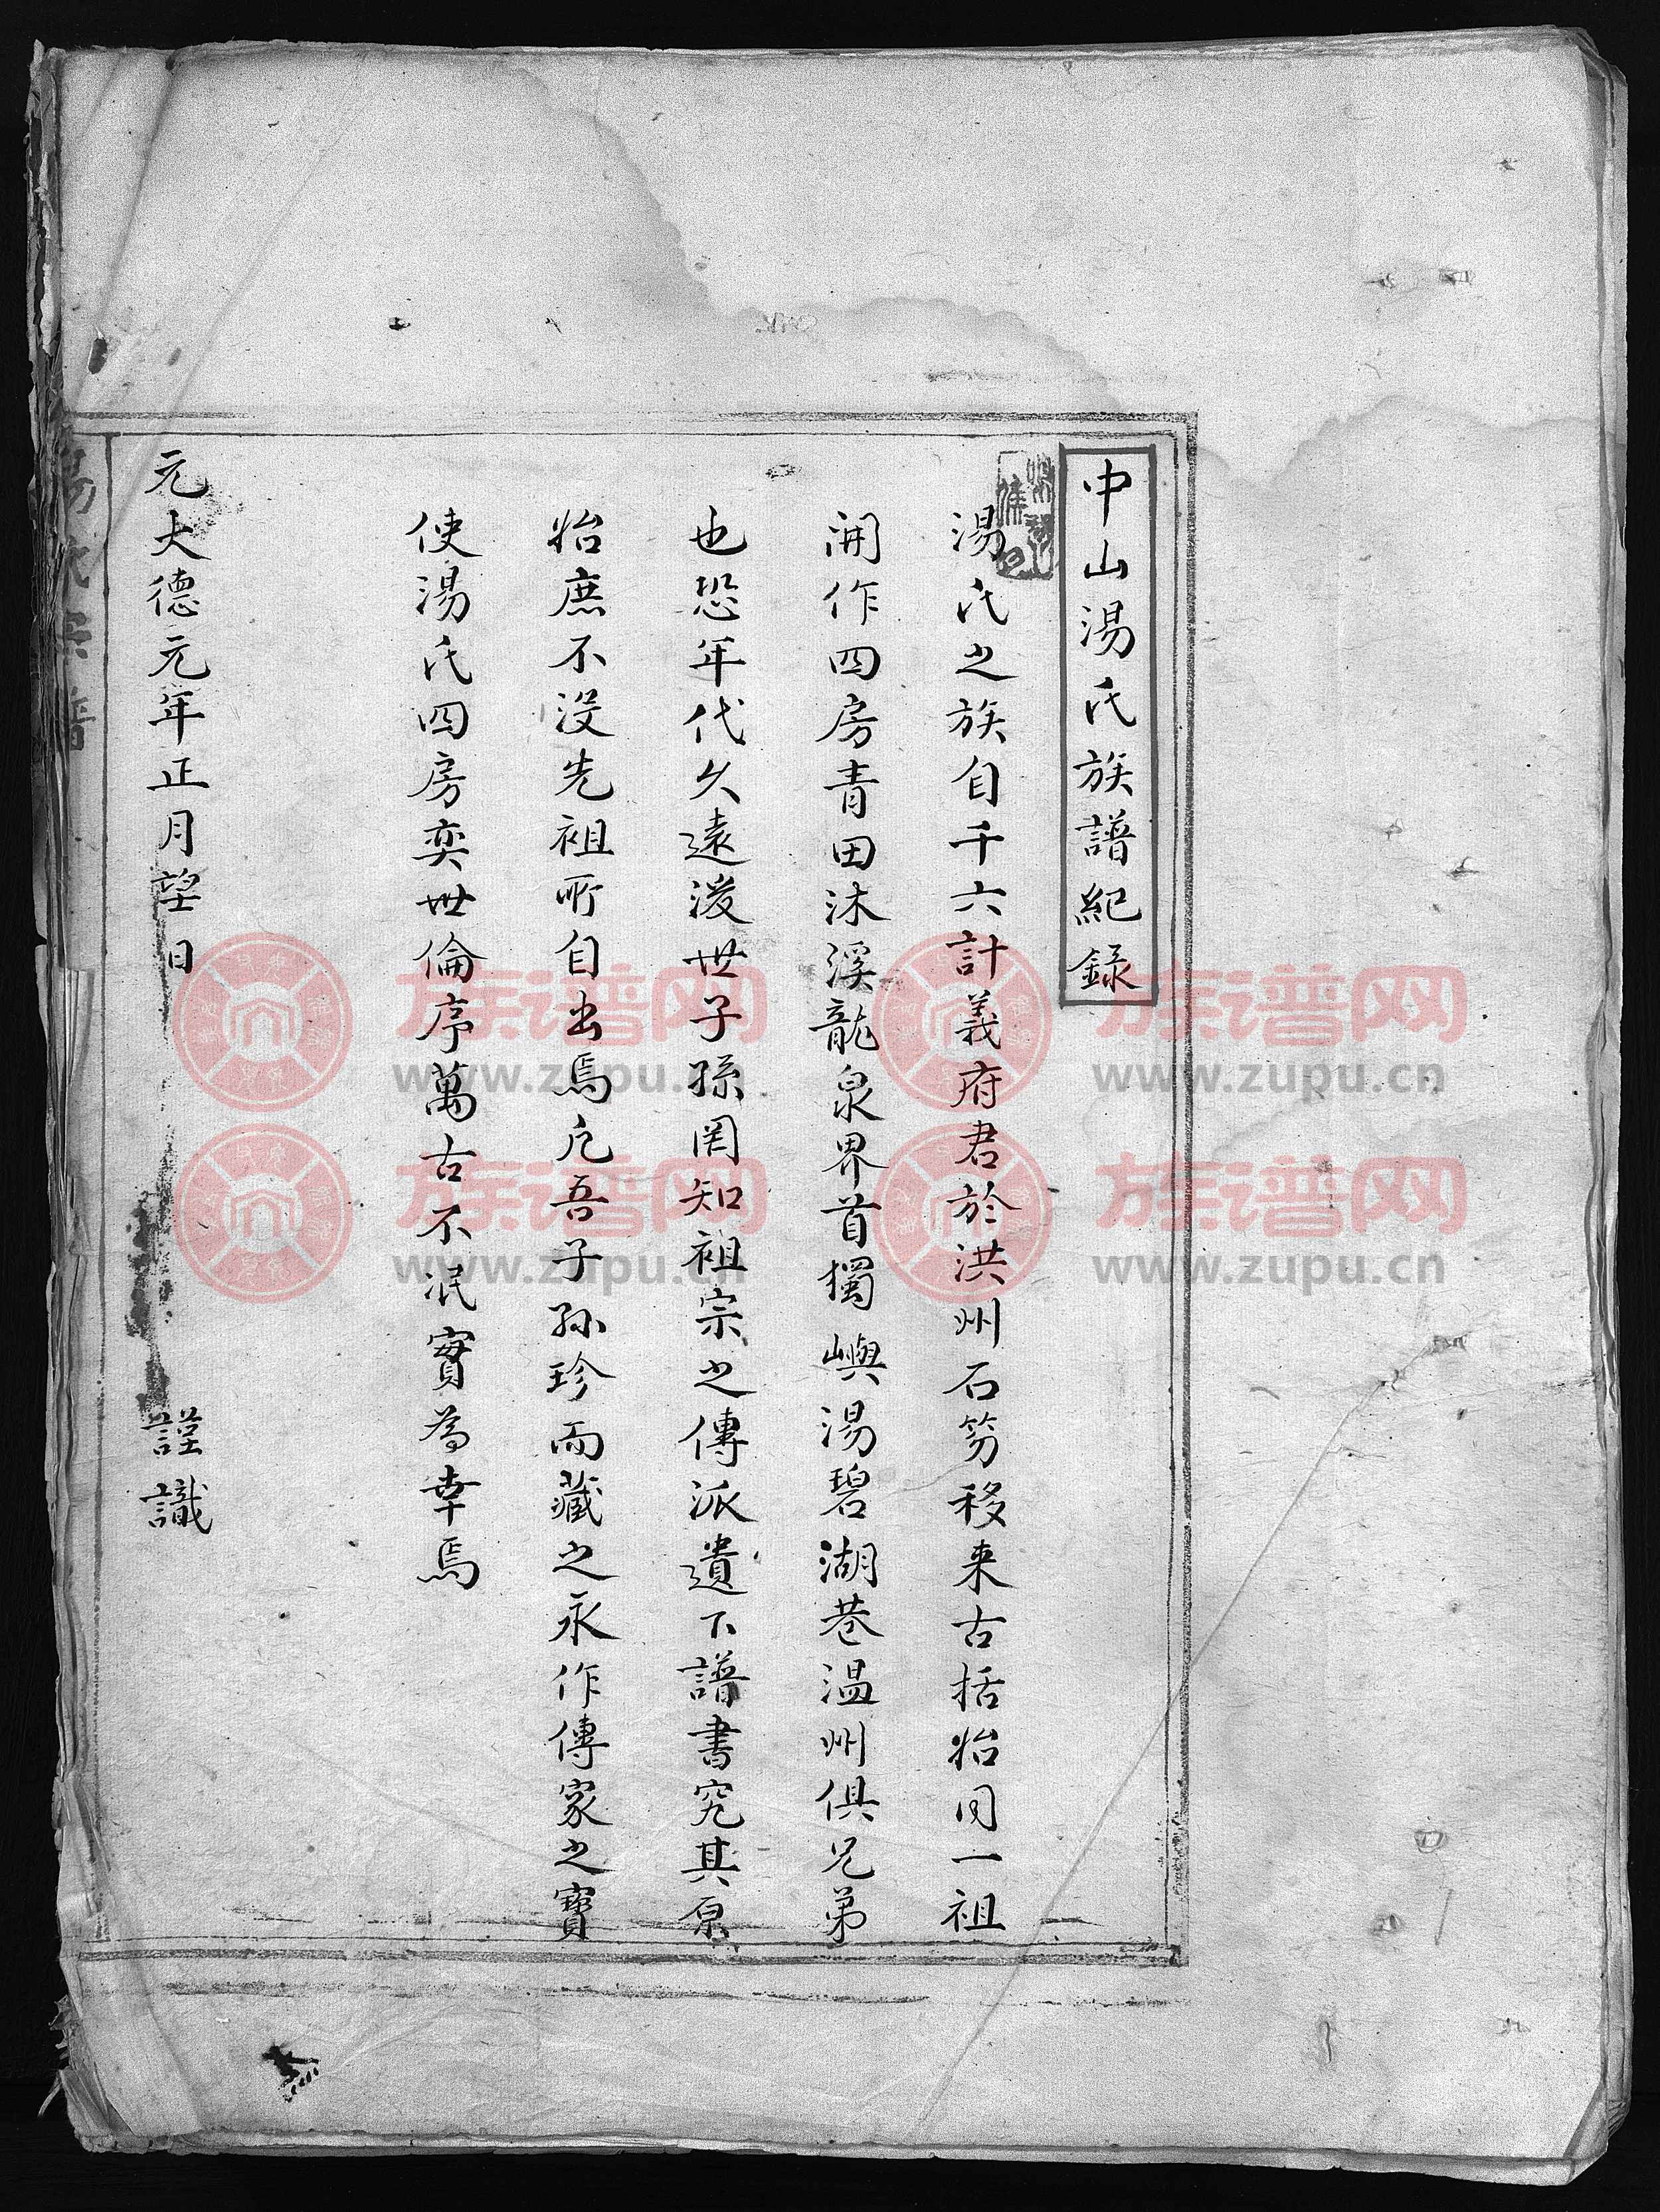 中山湯氏族譜紀錄
湯氏之族自千六計義府君於洪州石笏移来古括始同一祖
開作四房青田沐溪龍泉界首獨嶼湯碧湖巷温州俱兄弟
也恐年代久遠後世子孫罔知祖宗之傳派遺下譜書究其原
始庶不没先祖所自出焉凡吾子孫珍而藏之永作傳家之寶
使湯氏四房奕世倫序萬古不泯實為幸焉
元大德元年正月望日 謹識
湯氏宗譜
族谱网
www.zupu.cn
族谱网
www.zupu.cn
族谱网
www.zupu.cn
族谱网
www.zupu.cn